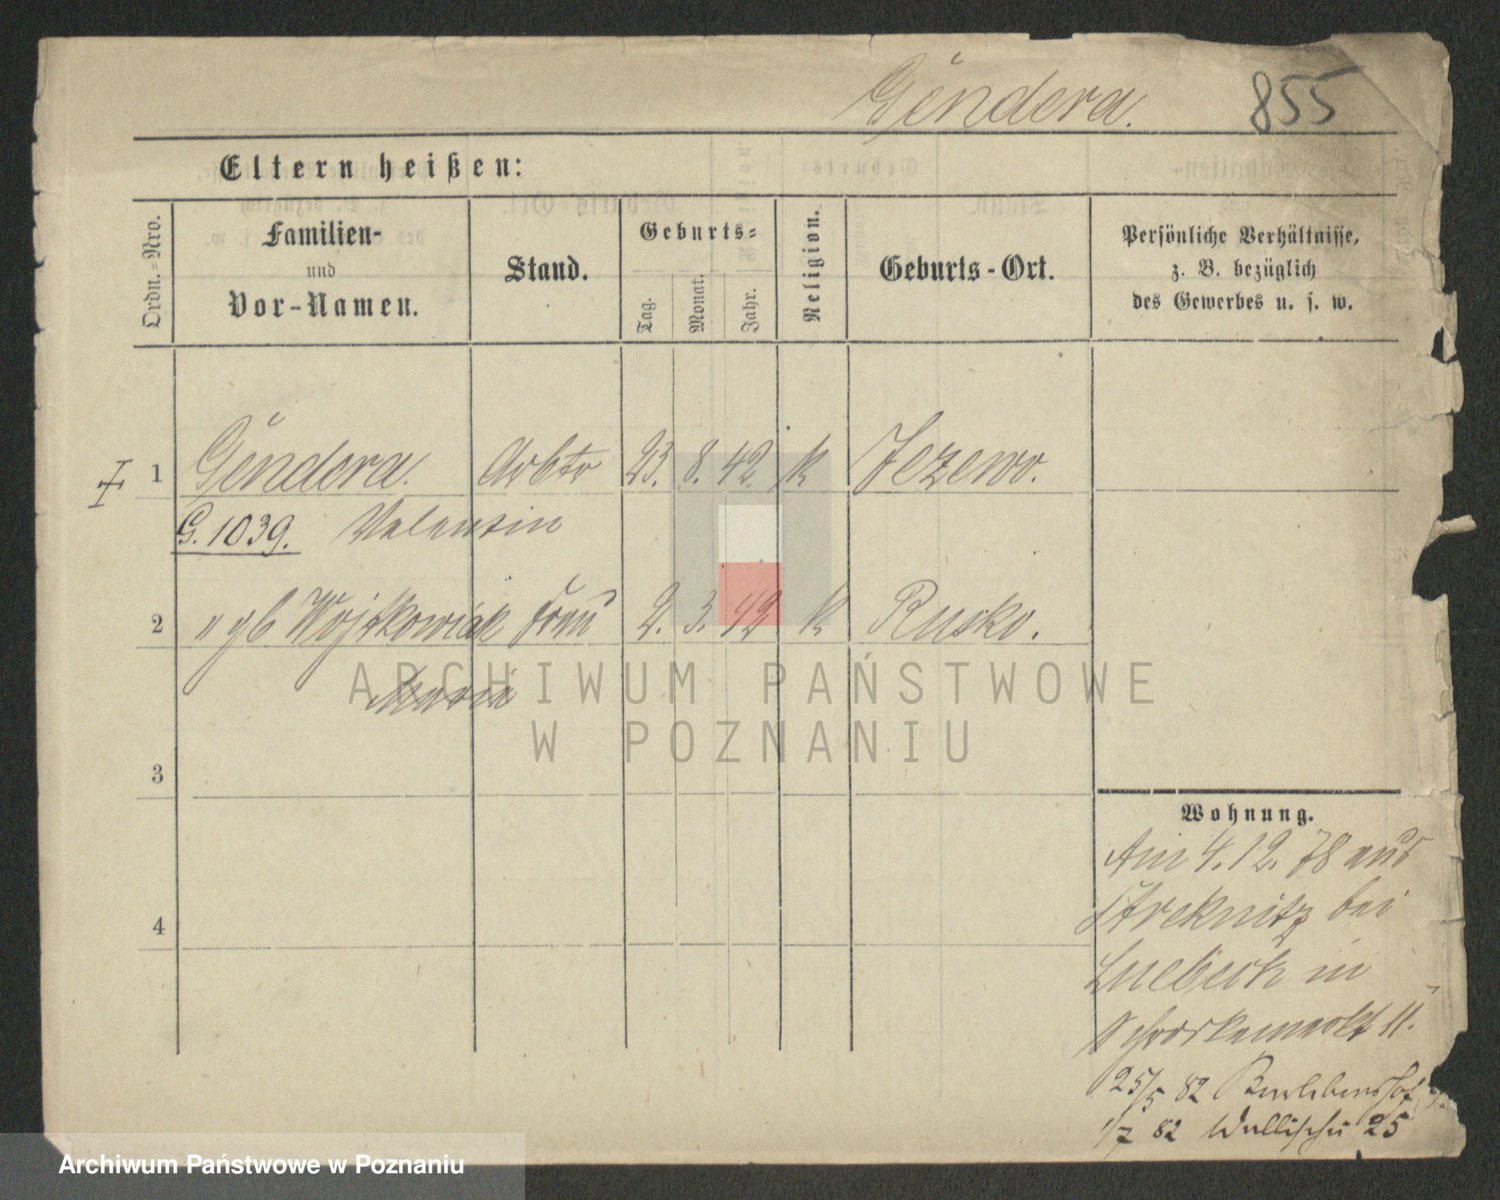 Gendera.
855
Eltern heißen:
Ordn.=Nro.
Familien-
und
Vor-Namen.
Stand.
Geburts=
Tag.
Monat.
Jahr.
Religion.
Geburts-Ort.
Persönliche Verhältnisse,
z. B. bezüglich
des Gewerbes u. s. w.
1 Gendera. Arbtr 23. 8. 42. k Jezewo.
G. 1039. Valentin
2 " gb Wojtkowiak Frau 2. 3. 42 k Rusko.
Maria
3
4
Wohnung.
Am 4.12.78 aus
Streknitz bei
Luebeck in
11.
25/5 82
1/7 82 Wallischei 25
ARCHIWUM PAŃSTWOWE
W POZNANIU
Archiwum Państwowe w Poznaniu